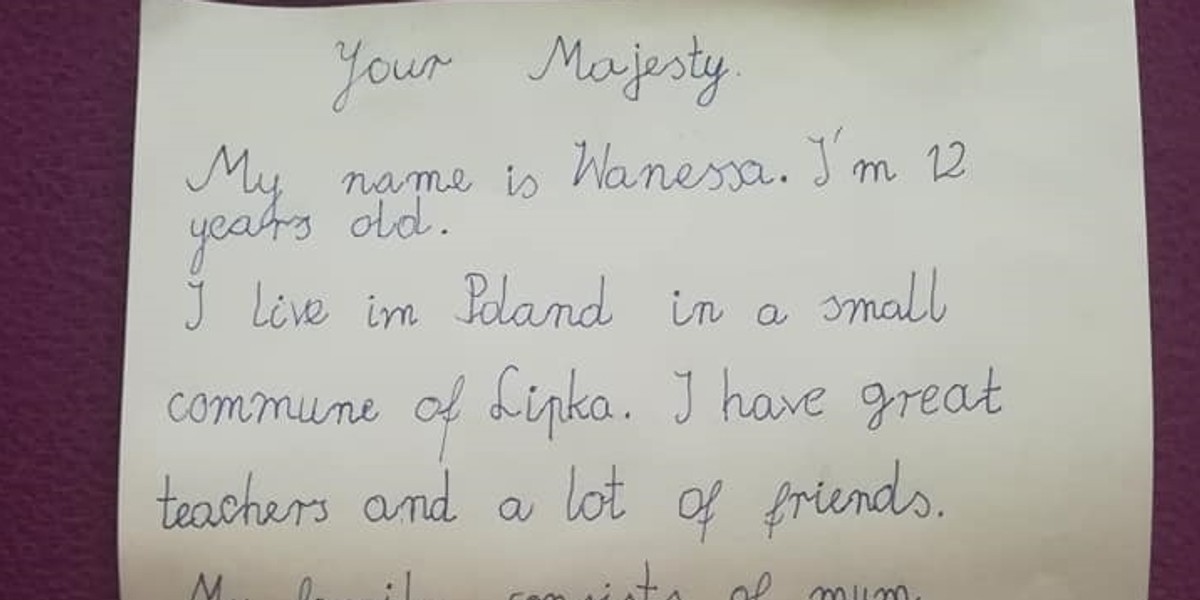 Your Majesty.
My name is Wanessa. I'm 12
years old.
I live im Poland in a small
commune of Lipka. I have great
teachers and a lot of friends.
My family consists of mum,